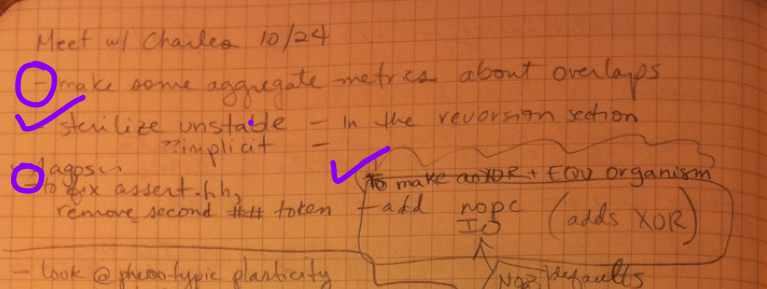 Meet w/ Charles 10/24
- make some aggregate metrics about overlaps
- sterilize unstable - in the reversion section
??implicit -
to fix assert.hh,
remove second ## token
to make an XOR + EQU organism
- add nopc (adds XOR)
IO
- look @ phenotypic plasticity
defaults